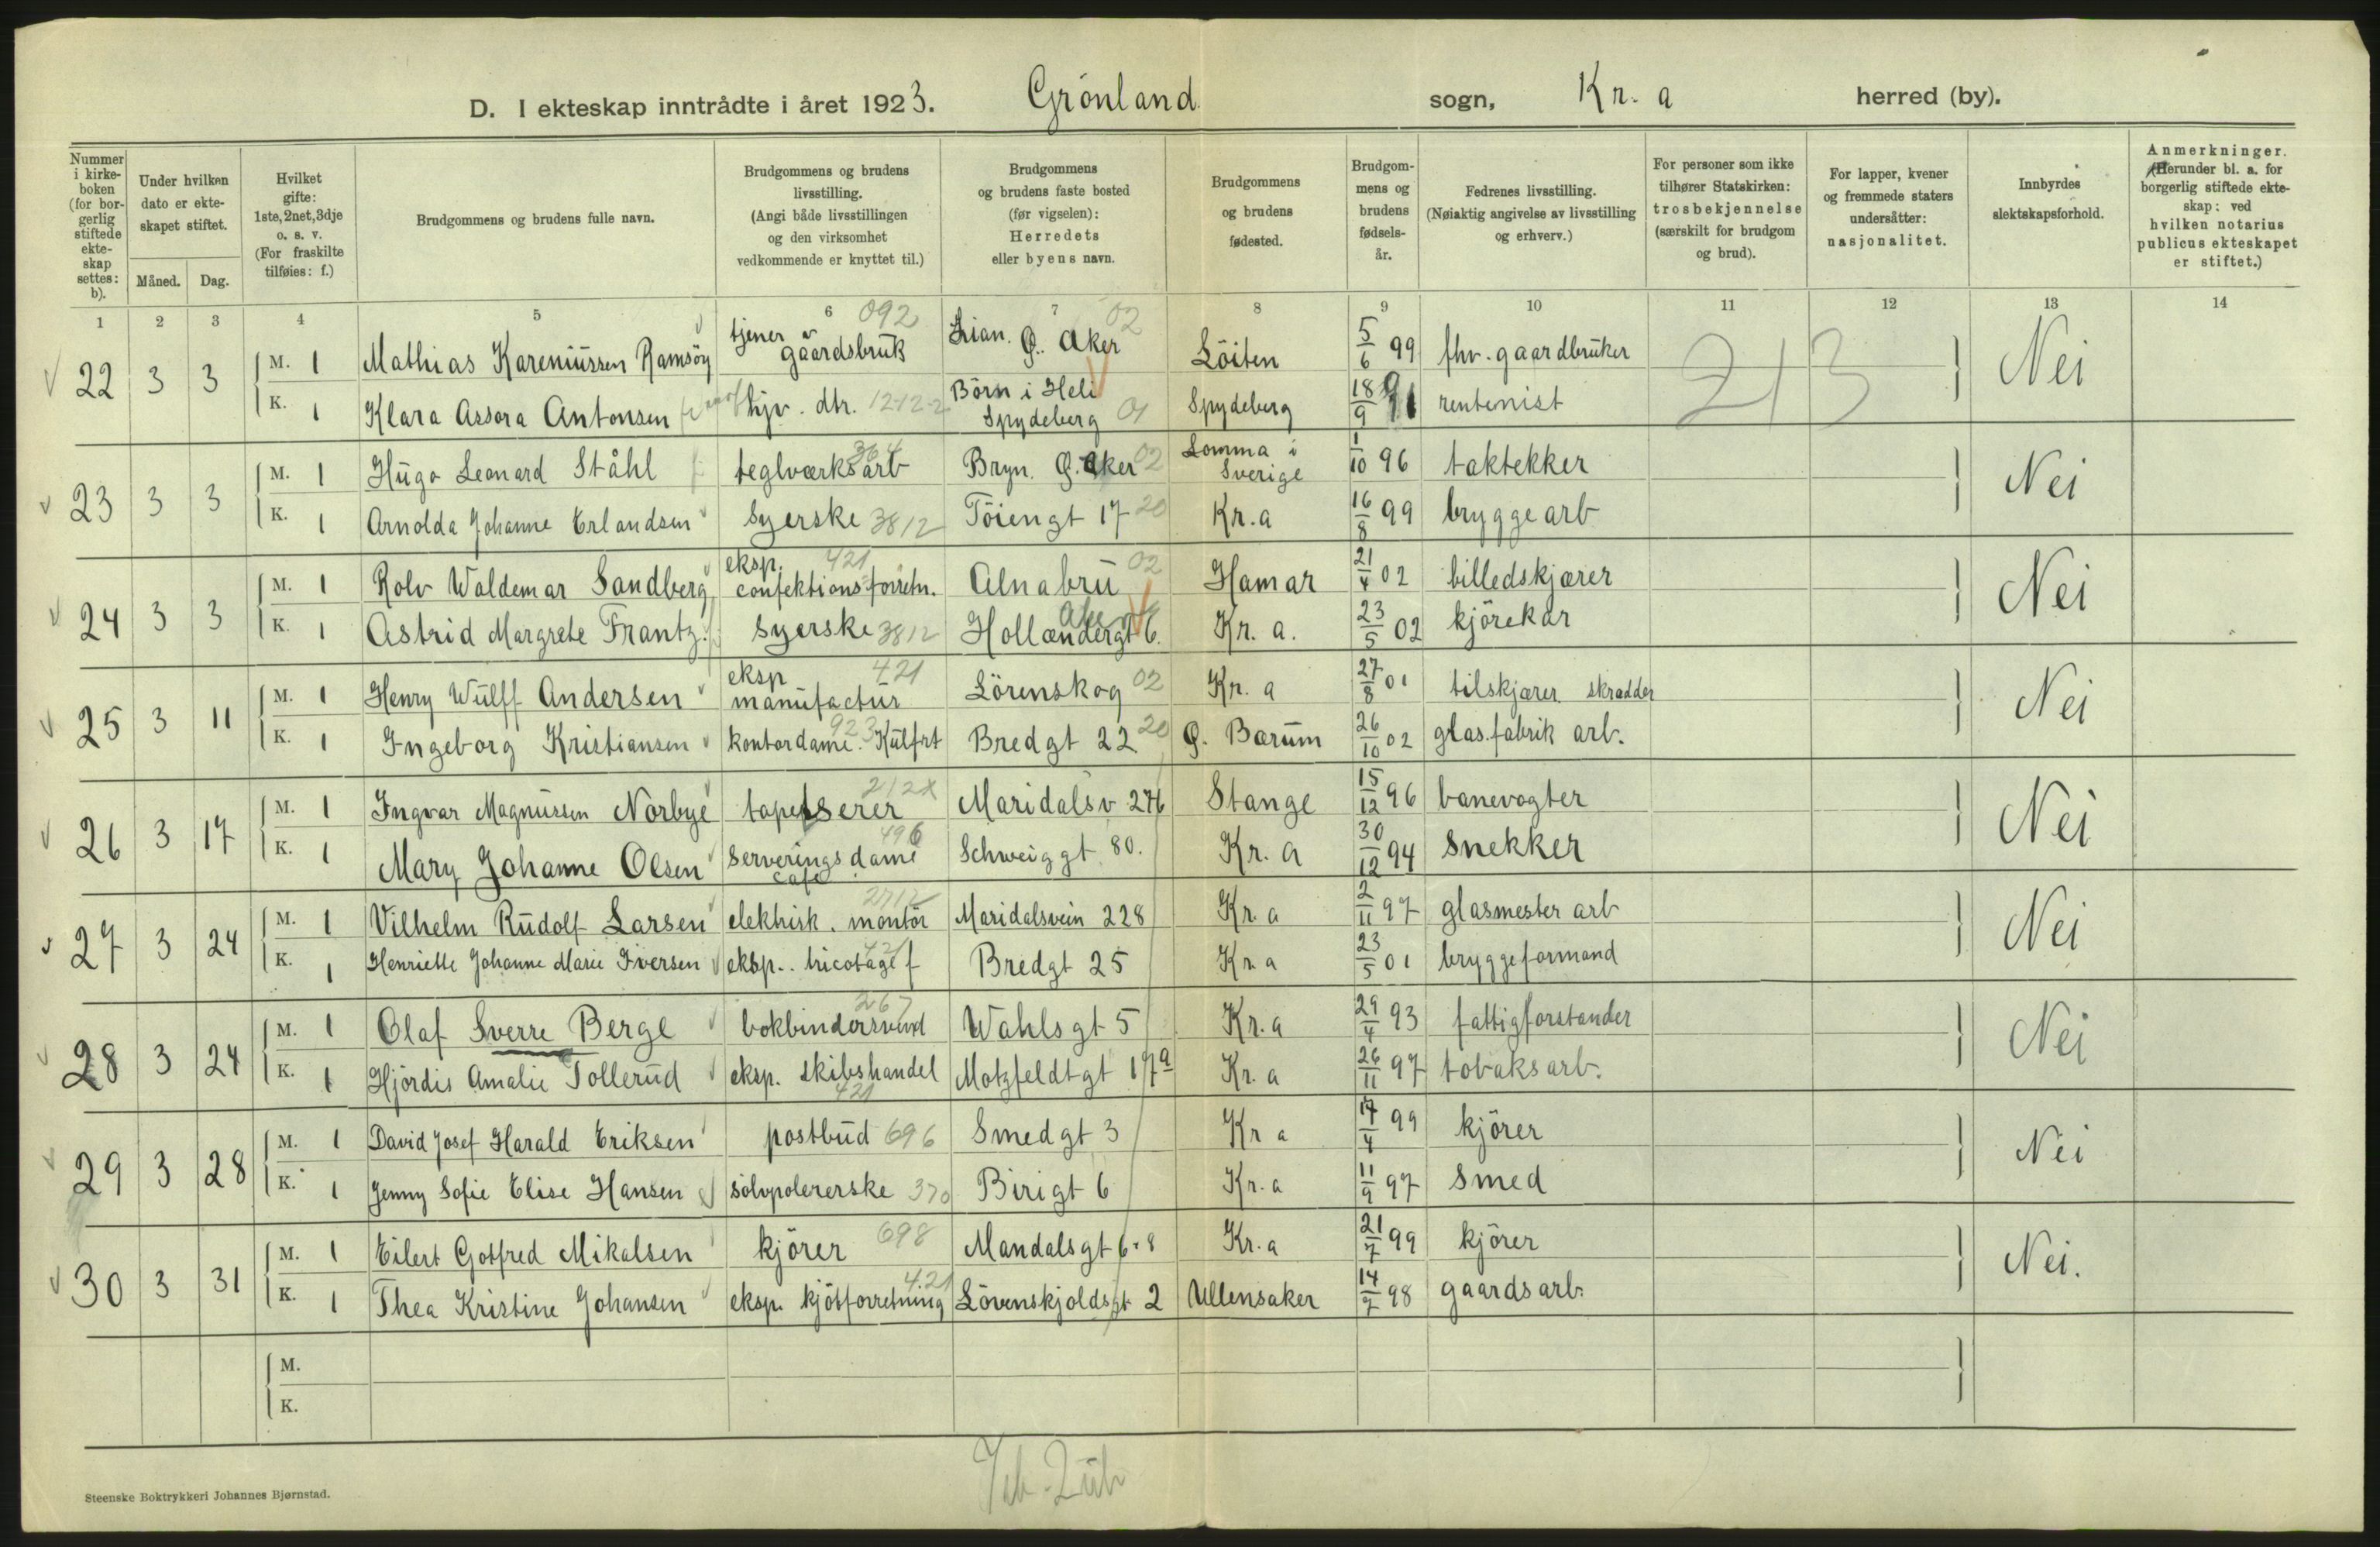 D. I ekteskap inntrådte i året 1923. Grönland sogn, Kr. a herred (by).
Nummer i kirkeboken (for borgerlig stiftede ekteskap settes: b).
Under hvilken dato er ekteskapet stiftet.
Måned. Dag.
Hvilket gifte: 1ste, 2net, 3dje o. s. v. (For fraskilte tilføies: f.)
Brudgommens og brudens fulle navn.
Brudgommens og brudens livsstilling. (Angi både livsstillingen og den virksomhet vedkommende er knyttet til.)
Brudgommens og brudens faste bosted (før vigselen): Herredets eller byens navn.
Brudgommens og brudens fødested.
Brudgommens og brudens fødselsår.
Fedrenes livsstilling. (Nøiaktig angivelse av livsstilling og erhverv.)
For personer som ikke tilhører Statskirken: trosbekjennelse (særskilt for brudgom og brud).
For lapper, kvener og fremmede staters undersåtter: nasjonalitet.
Innbyrdes slektskapsforhold.
Anmerkninger. (Herunder bl. a. for borgerlig stiftede ekteskap: ved hvilken notarius publicus ekteskapet er stiftet.)
1 2 3 4 5 6 7 8 9 10 11 12 13 14
22 3 3 M. 1 Mathias Kareniussen Ramsöy tjener gaardsbruk 092 Lian. Ø. Aker 02 Löiten 5/6 99 fhv. gaardbruker 213 Nei
K. 1 Klara Assora Antonsen hjv. dtr. 12-12-2 Börn i Heli Spydeberg 01 Spydeberg 18/9 91 rentenist
23 3 3 M. 1 Hugo Leonard Ståhl teglværksarb 364 Bryn. Ø. Aker 02 Lomma i Sverige 1/10 96 taktekker Nei
K. 1 Arnolda Johanne Erlandsen Syerske 3812 Töiengt 17 20 Kr.a 16/8 99 bryggearb
24 3 3 M. 1 Rolv Waldemar Sandberg eksp. confektionsforretn. 421 Alnabru 02 Aker Hamar 21/4 02 billedskjærer Nei
K. 1 Astrid Margrete Frantz. syerske 3812 Hollændergt 6. Kr. a. 23/5 02 kjörekar
25 3 11 M. 1 Henry Wulff Andersen eksp manufactur 421 Lörenskog 02 Kr. a 27/8 01 tilskjærer skradder Nei
K. 1 Ingeborg Kristiansen kontordame. Kulfrt 923 Bredgt 22 20 Ø. Bærum 26/10 02 glas.fabrik arb.
26 3 17 M. 1 Ingvar Magnussen Norbye tapetserer 212x Maridalsv 276 Stange 15/12 96 banevogter Nei
K. 1 Mary Johanne Olsen Serveringsdame cafe 496 Schweiggt 80. Kr. a 30/12 94 Snekker
27 3 24 M. 1 Vilhelm Rudolf Larsen elektrisk. montör 2712 Maridalsvein 228 Kr. a 2/11 97 glasmester arb Nei
K. 1 Henriette Johanne Marie Iversen eksp.. tricotage f 421 Bredgt 25 Kr. a 23/5 01 bryggeformand
28 3 24 M. 1 Olaf Sverre Berge bokbindersvend 267 Wahlsgt 5 Kr.a 29/4 93 fattigforstander Nei
K. 1 Hjördis Amalie Tollerud eksp. skibshandel 421 Motzfeldtgt 17a Kr. a 26/11 97 tobaksarb.
29 3 28 M. 1 David Josef Harald Eriksen postbud 696 Smedgt 3 Kr a 17/4 99 kjörer Nei
K. 1 Jenny Sofie Elise Hansen sölvpolererske 370 Birigt 6 Kr. a 11/9 97 Smed
30 3 31 M. 1 Eilert Gotfred Mikalsen kjörer 698 Mandalsgt 6-8 Kr. a 21/7 99 kjörer Nei.
K. 1 Thea Kristine Johansen eksp. kjötforretning 421 Lövenskjoldsgt 2 Ullensaker 14/9 98 gaardsarb.
M.
K.
Steenske Boktrykkeri Johannes Bjørnstad.